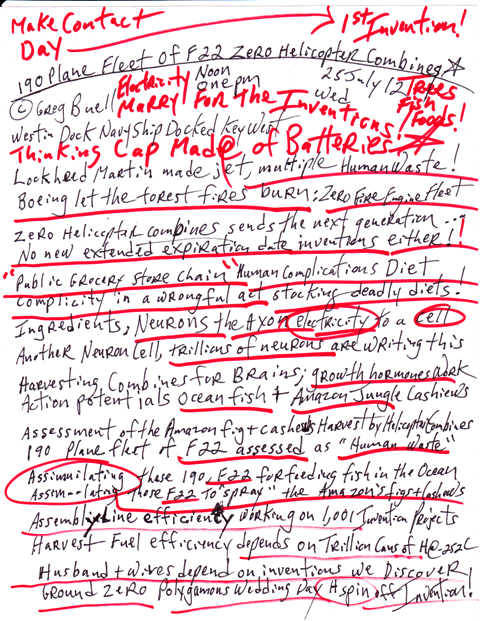 Make Contact Day → 1st Invention!
190 Plane Fleet Of F22 Zero Helicopter Combines
© Greg Buell Electricity Noon one pm 25 July 12 Wed Trees Fish Foods!
Marry For The Inventions!
Westin Dock Navy Ship Docked Key West
Thinking Cap Made of Batteries
Lockheed Martin made jet, multiple Human Waste!
Boeing let the forest fires burn: Zero Fire Engine Fleet
Zero Helicopter combines sends the next generation ...
No new extended expiration date inventions either!!
"Public Grocery Store Chain" Human Complications Diet
Complicity in a wrongful act stocking deadly diets!
Ingredients, Neurons the Axon electricity to a cell
Another Neuron Cell, trillions of neurons are writing this
Harvesting, Combines for Brains; growth hormones work
Action potentials Ocean fish + Amazon Jungle Cashiews
Assessment of the Amazon fig + cashews Harvest by Helicopter Combines
190 Plane fleet of F22 assessed as "Human Waste"
Assimilating these 190, F22 for feeding fish in the Ocean
Assimilating those F22 To "spray" the Amazon's figs + Cashew's
Assembly Line efficiency working on 1,001 Invention Projects
Harvest Fuel efficiency depends on Trillion Cans of H@-252C
Husband + wives depend on inventions we Discover
Ground Zero Polygamous Wedding Day A spin off Invention!